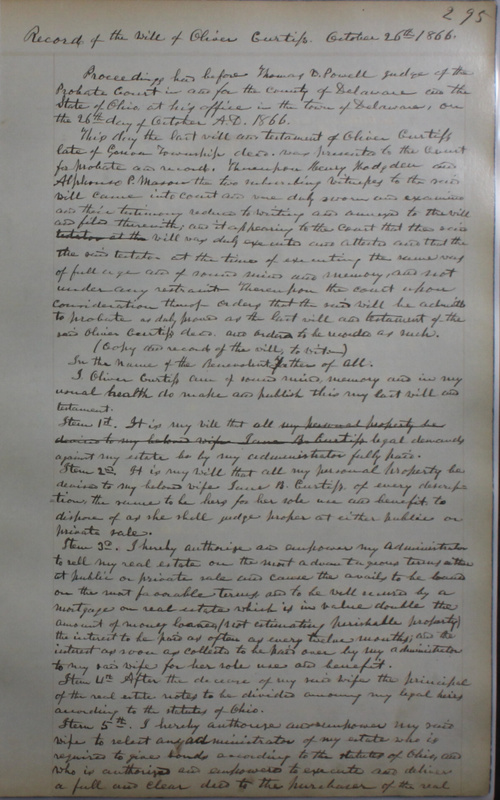 295
Record of the Will of Oliver Curtiss. October 26th 1866.
Proceedings had before Thomas W. Powell Judge of the
Probate Court in and for the County of Delaware and the
State of Ohio at his office in the town of Delaware, on
the 26th day of October A.D. 1866.
This day the last will and testament of Oliver Curtiss
late of Genoa Township decd. was presented to the Court
for probate and record. Thereupon Henry Hodgden and
Alphonso P. Mason the two subscribing witnesses to the said
will came into court and were duly sworn and examined
and their testimony reduced to writing and annexed to the will
and filed therewith; and it appearing to the Court that the said
testator at the will was duly executed and attested and that the
the said testator at the time of executing the same was
of full age and of sound mind and memory, and not
under any restraint Thereupon the court upon
consideration thereof orders that the said will be admitted
to probate as duly proven as the last will and testament of the
said Oliver Curtiss decd. and ordered to be recorded as such.
(Copy and record of the will, to wit)
In the name of the Benevolent Father of All.
I Oliver Curtiss am of sound mind, memory and in my
usual health do make and publish this my last will and
testament.
Item 1st. It is my will that all my personal property be
devised to my beloved wife Jane B. Curtiss legal demands
against my estate be by my administrator fully paid.
Item 2d. It is my will that all my personal property be
devised to my beloved wife Jane B. Curtiss, of every descrip-
tion, the same to be hers for her sole use and benefit, to
dispose of as she shall judge proper at either public or
private sale.
Item 3d. I hereby authorize and empower my administrator
to sell my real estate on the most advantageous terms either
at public or private sale and cause the avails to be loaned
on the most favorable terms and to be well secured by a
mortgage on real estate which is in value double the
amount of money loaned, (not estimating perishable property)
the interest to be paid as often as every twelve months; and the
interest as soon as collected to be paid over by my administrator
to my said wife for her sole use and benefit.
Item 4th After the decease of my said wife the principal
of the real estate notes to be divided among my legal heirs
according to the statutes of Ohio.
Item 5th. I hereby authorize and empower my said
wife to select an administrator of my estate who is
required to give bonds according to the statutes of Ohio, and
who is authorized and empowered to execute and deliver
a full and clear deed to the purchaser of the real